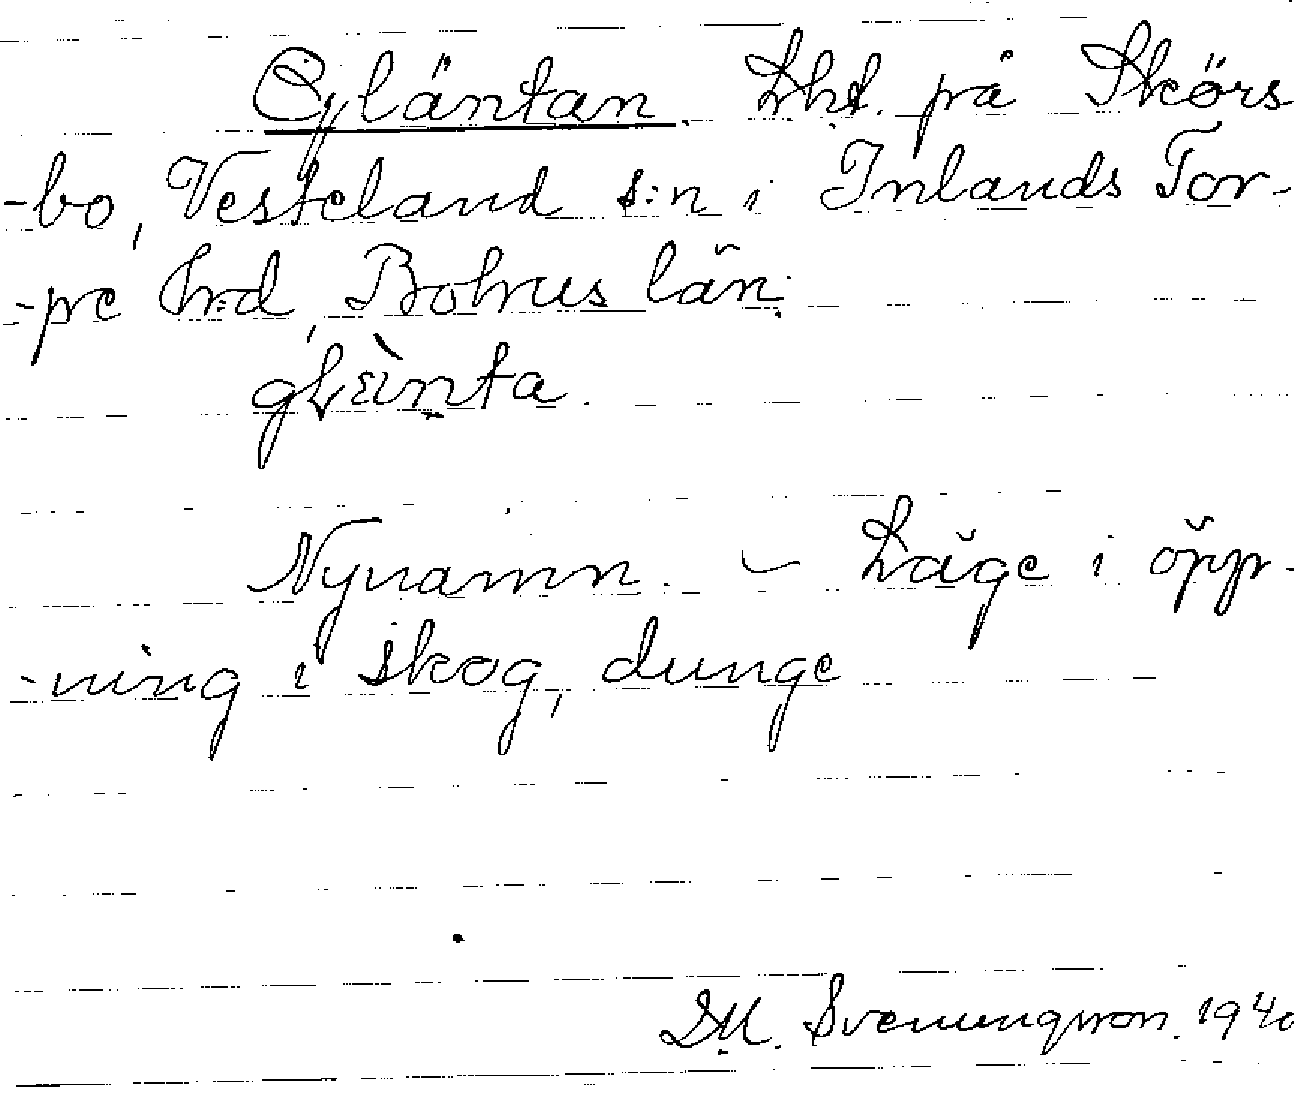 Gläntan. Lht. på Skörs
-bo, Vesteland s:n i Inlands Tor-
-pe hrd, Bohus län.
gLä̀nta.
Nynamn. – Läge i öpp-
-ning i skog, dunge
D.M. Svenungsson. 1940